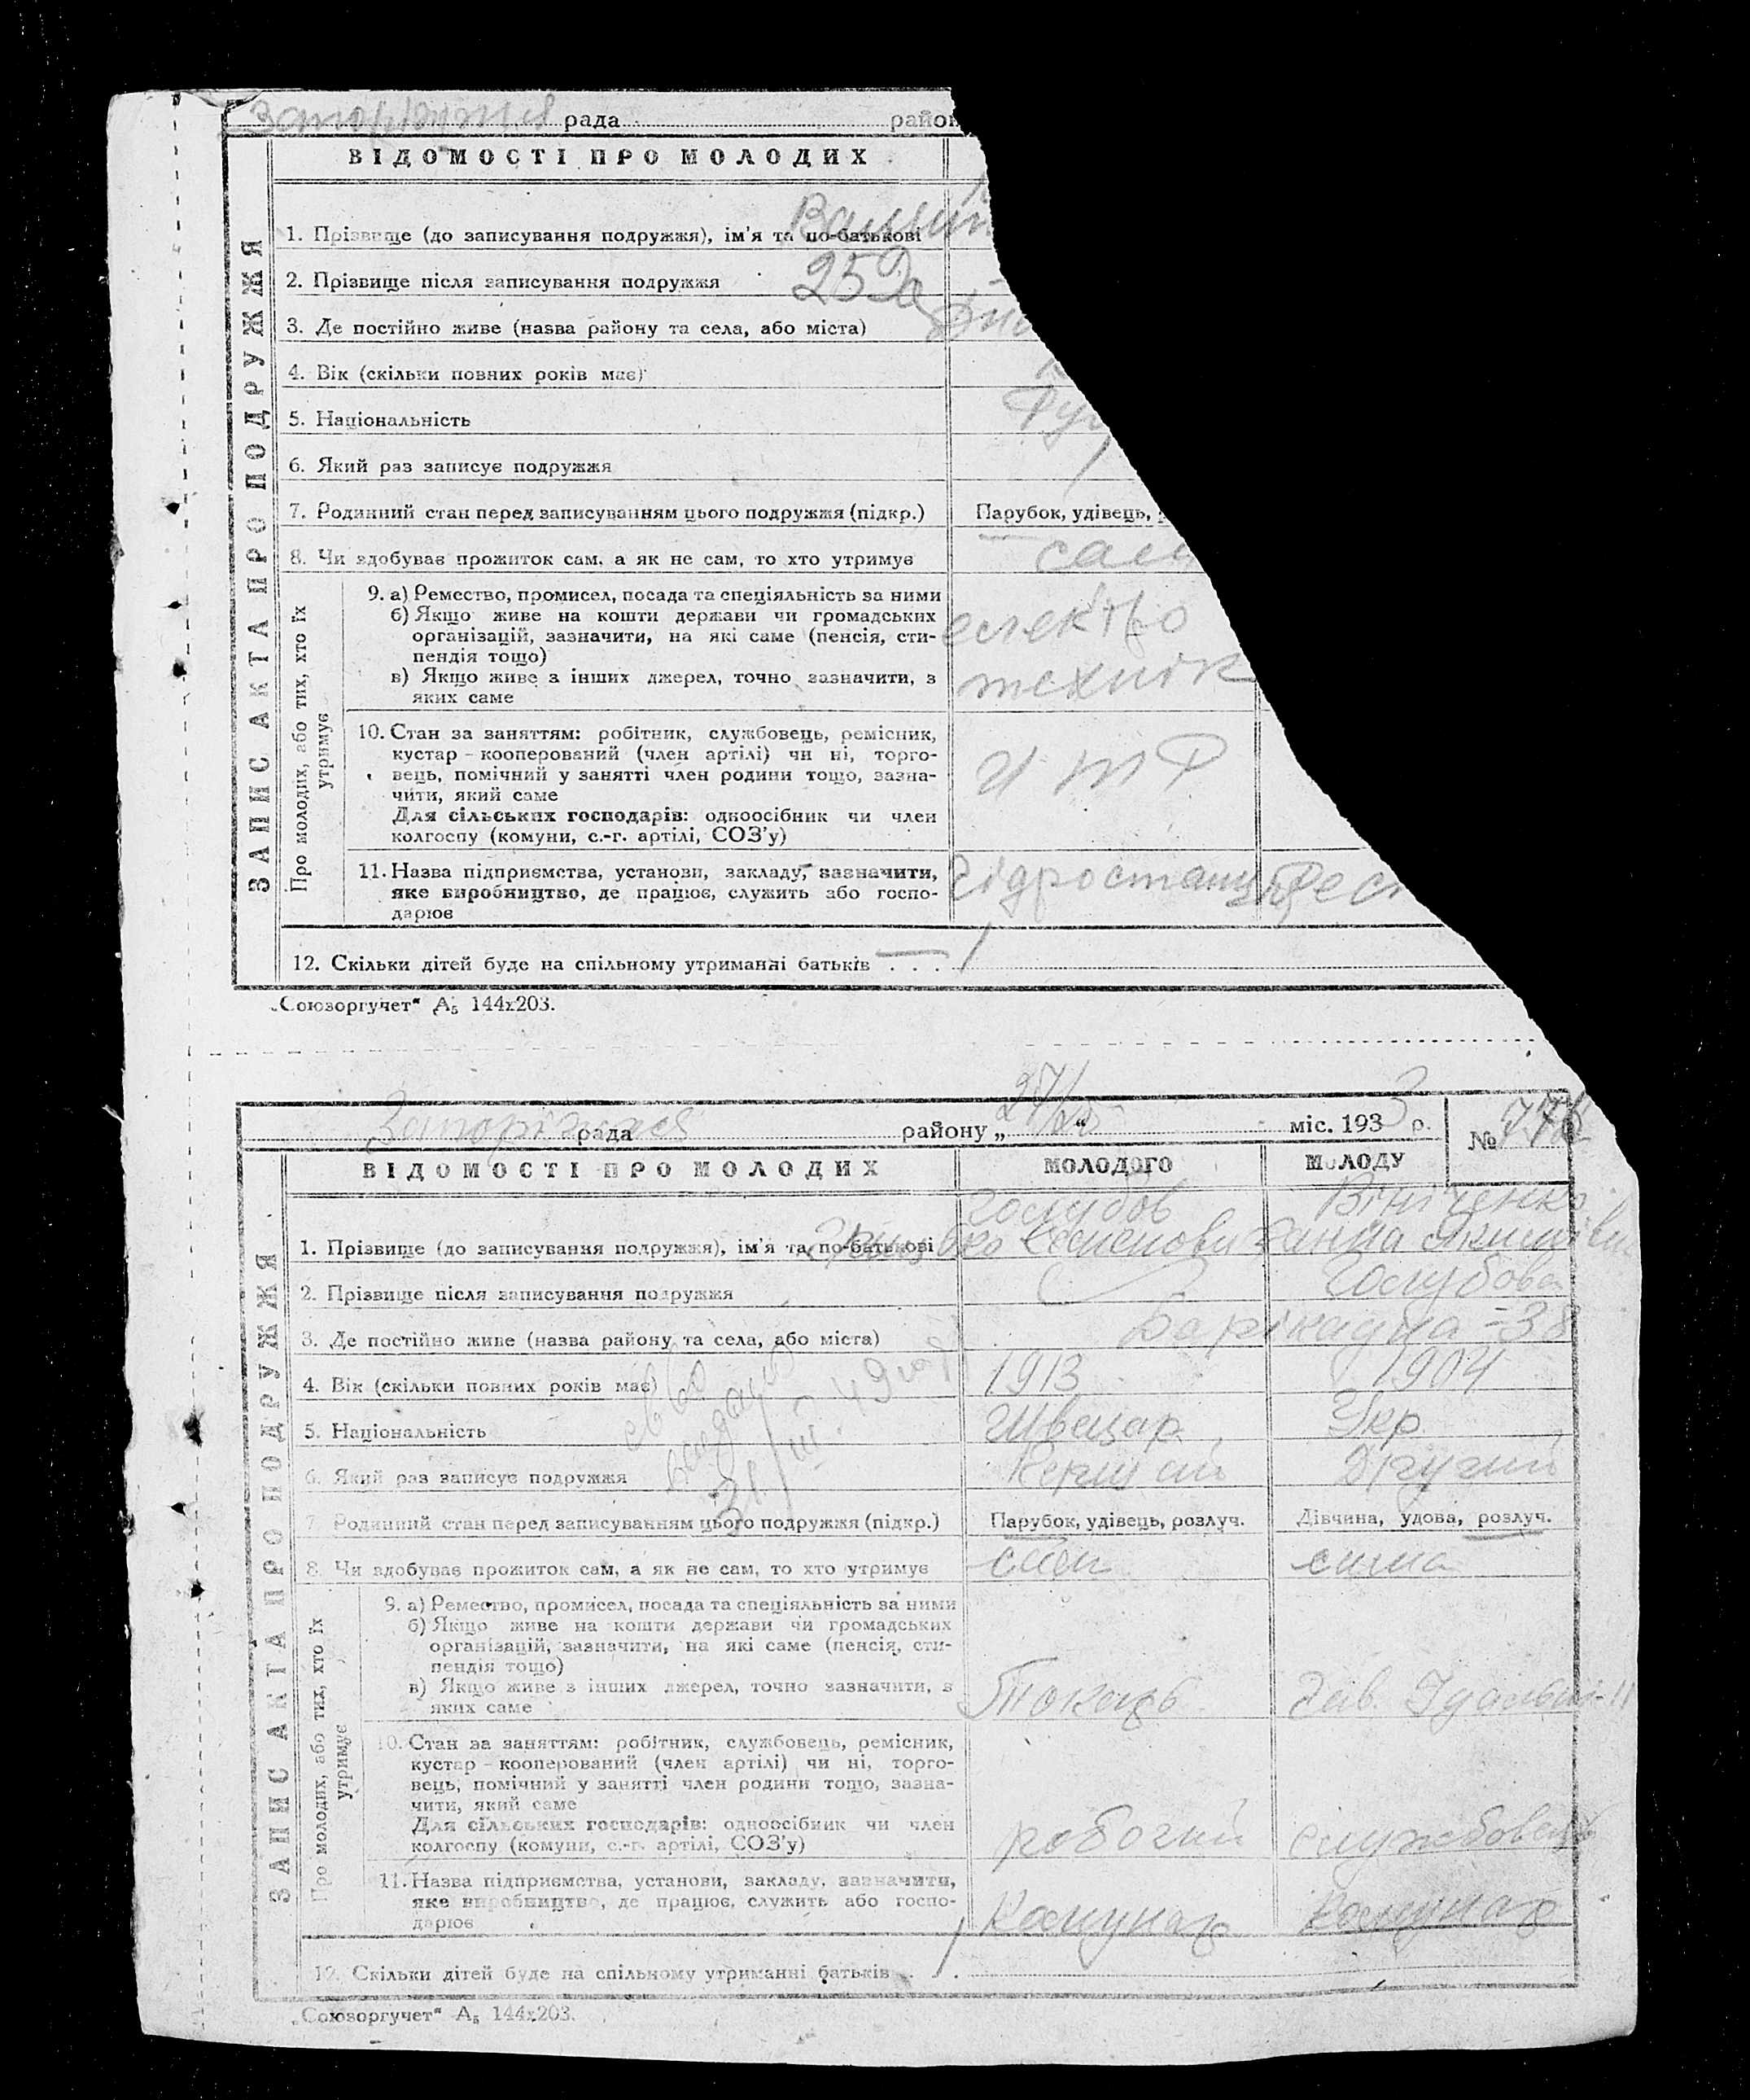 рада район
ВІДОМОСТІ ПРО МОЛОДИХ
ЗАПИС АКТА ПРО ПОДРУЖЖЯ
1. Прізвище (до записування подружжя), ім'я та по-батькові
2. Прізвище після записування подружжя 25
3. Де постійно живе (назва району та села, або міста)
4. Вік (скільки повних років має)
5. Національність
6. Який раз записує подружжя 1
7. Родинний стан перед записуванням цього подружжя (підкр.) Парубок, удівець,
8. Чи здобуває прожиток сам, а як не сам, то хто утримує сам
Про молодих, або тих, хто їх утримує
9. а) Ремество, промисел, посада та спеціяльність за ними
б) Якщо живе на кошти держави чи громадських
організацій, зазначити, на які саме (пенсія, сти- електро
пендія тощо)
в) Якщо живе з інших джерел, точно зазначити, з технік
яких саме
10. Стан за заняттям: робітник, службовець, ремісник,
кустар - кооперований (член артілі) чи ні, торго-
вець, помічний у занятті член родини тощо, зазна- ИТР
чити, який саме
Для сільських господарів: одноосібник чи член
колгоспу (комуни, с.-г. артілі, СОЗ'у)
11. Назва підприємства, установи, закладу, зазначити,
яке виробництво, де працює, служить або госпо- Гідростанц
дарює
12. Скільки дітей буде на спільному утриманні батьків . . .
„Союзоргучет" А5 144х203.
Запоріжжя рада району „ " міс. 1933 р. №
ВІДОМОСТІ ПРО МОЛОДИХ МОЛОДОГО МОЛОДУ
ЗАПИС АКТА ПРО ПОДРУЖЖЯ
Голубов Вініченко
1. Прізвище (до записування подружжя), ім'я та по-батькові Ганна
2. Прізвище після записування подружжя Голубова
3. Де постійно живе (назва району та села, або міста) Барікадна - 38
4. Вік (скільки повних років має) 1913 1904
5. Національність Швецар. Укр.
6. Який раз записує подружжя Перший Другий
7. Родинний стан перед записуванням цього подружжя (підкр.) Парубок, удівець, розлуч. Дівчина, удова, розлуч.
8. Чи здобуває прожиток сам, а як не сам, то хто утримує сам сама
Про молодих, або тих, хто їх утримує
9. а) Ремество, промисел, посада та спеціяльність за ними
б) Якщо живе на кошти держави чи громадських
організацій, зазначити, на які саме (пенсія, сти-
пендія тощо)
в) Якщо живе з інших джерел, точно зазначити, з Токарь зав.
яких саме
10. Стан за заняттям: робітник, службовець, ремісник,
кустар - кооперований (член артілі) чи ні, торго-
вець, помічний у занятті член родини тощо, зазна-
чити, який саме
Для сільських господарів: одноосібник чи член
колгоспу (комуни, с.-г. артілі, СОЗ'у) робочий службовець
11. Назва підприємства, установи, закладу, зазначити,
яке виробництво, де працює, служить або госпо- Комунар Комунар
дарює
12. Скільки дітей буде на спільному утриманні батьків . . .
„Союзоргучет" А5 144х203.